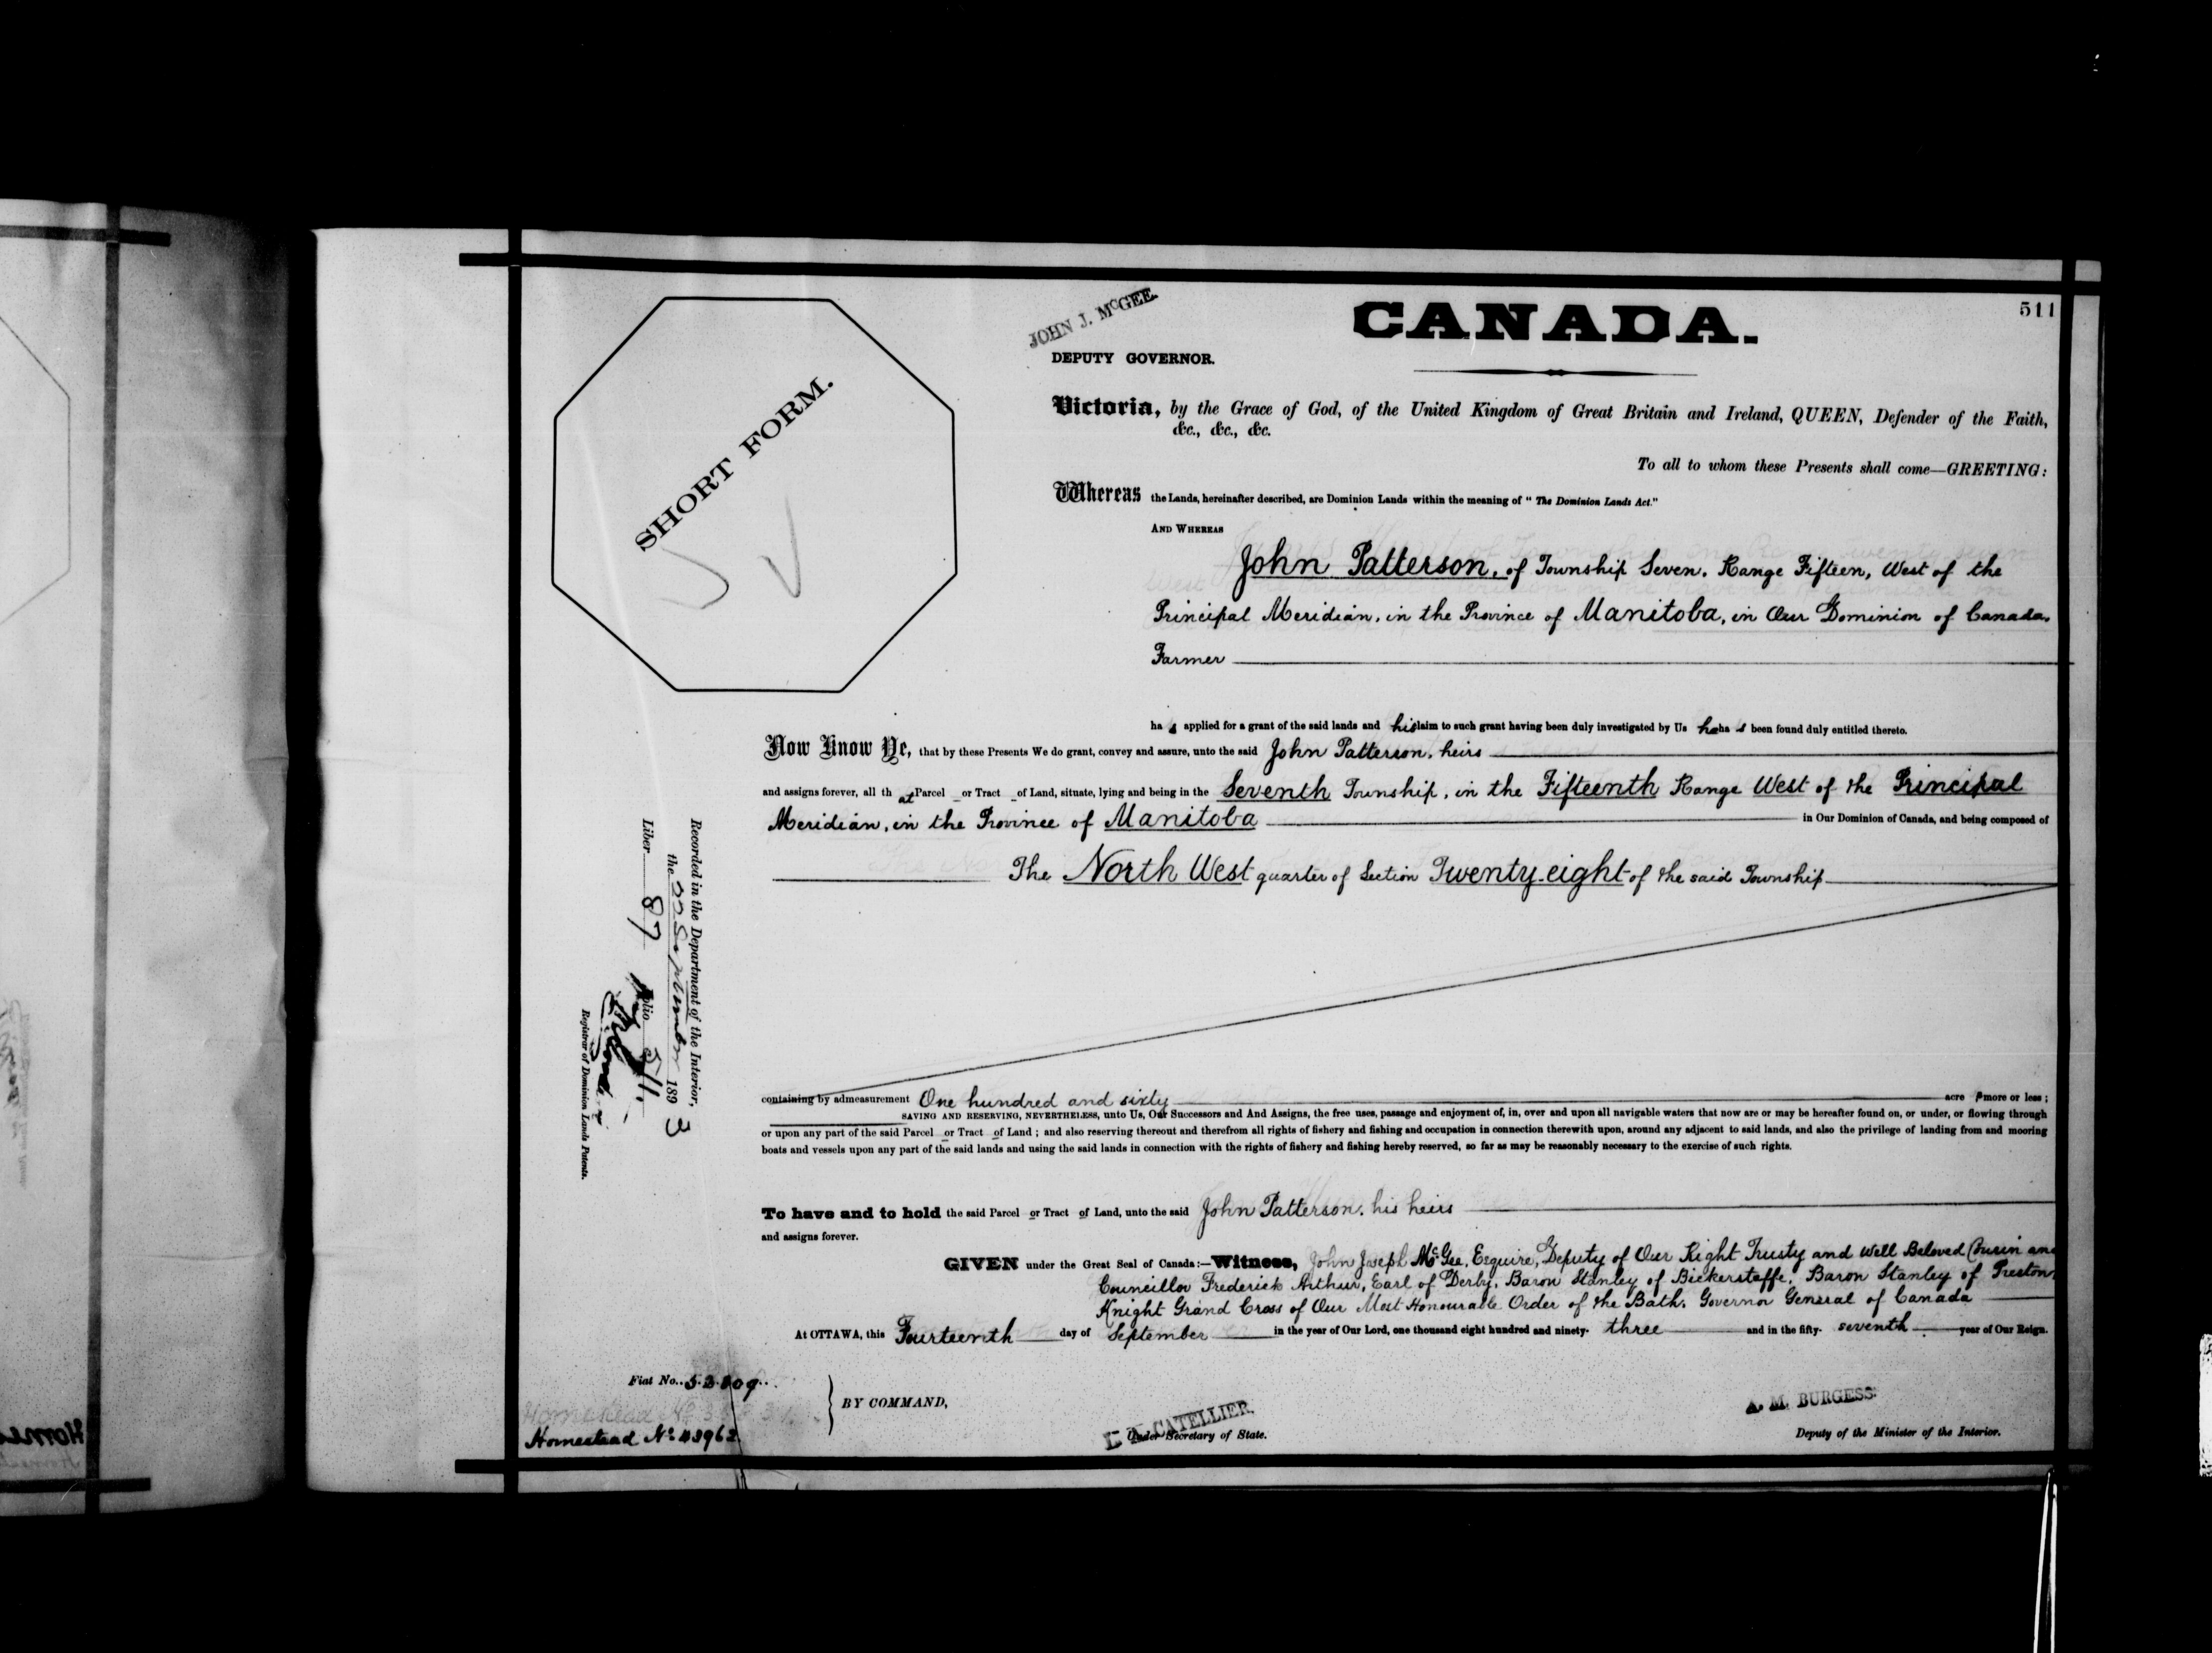 511
JOHN J. McGEE.
CANADA.
DEPUTY GOVERNOR.
SHORT FORM.
Victoria, by the Grace of God, of the United Kingdom of Great Britain and Ireland, QUEEN, Defender of the Faith,
&c., &c., &c.
To all to whom these Presents shall come—GREETING:
Whereas the Lands, hereinafter described, are Dominion Lands within the meaning of "The Dominion Lands Act."
AND WHEREAS
John Patterson, of Township Seven, Range Fifteen, West of the
Principal Meridian, in the Province of Manitoba, in Our Dominion of Canada,
Farmer
ha s applied for a grant of the said lands and his claim to such grant having been duly investigated by Us he ha s been found duly entitled thereto.
Now Know Ye, that by these Presents We do grant, convey and assure, unto the said John Patterson, heirs
and assigns forever, all th at Parcel or Tract of Land, situate, lying and being in the Seventh Township, in the Fifteenth Range West of the Principal
Meridian, in the Province of Manitoba in Our Dominion of Canada, and being composed of
The North West quarter of Section Twenty-eight of the said Township
containing by admeasurement One hundred and sixty acre more or less;
SAVING AND RESERVING, NEVERTHELESS, unto Us, Our Successors and And Assigns, the free uses, passage and enjoyment of, in, over and upon all navigable waters that now are or may be hereafter found on, or under, or flowing through
or upon any part of the said Parcel or Tract of Land; and also reserving thereout and therefrom all rights of fishery and fishing and occupation in connection therewith upon, around any adjacent to said lands, and also the privilege of landing from and mooring
boats and vessels upon any part of the said lands and using the said lands in connection with the rights of fishery and fishing hereby reserved, so far as may be reasonably necessary to the exercise of such rights.
To have and to hold the said Parcel or Tract of Land, unto the said John Patterson, his heirs
and assigns forever.
GIVEN under the Great Seal of Canada:—Witness, John Joseph McGee, Esquire, Deputy of Our Right Trusty and Well Beloved Cousin and
Councillor Frederick Arthur, Earl of Derby, Baron Stanley of Bickerstaffe, Baron Stanley of Preston,
Knight Grand Cross of Our Most Honourable Order of the Bath, Governor General of Canada
At OTTAWA, this Fourteenth day of September in the year of Our Lord, one thousand eight hundred and ninety- three and in the fifty- seventh year of Our Reign.
Fiat No. 52809
BY COMMAND,
Homestead No 43962
L. A. CATELLIER.
Under Secretary of State.
A. M. BURGESS
Deputy of the Minister of the Interior.
Recorded in the Department of the Interior,
the 22 September 1893
Liber 87 Folio 511
Registrar of Dominion Lands Patents.